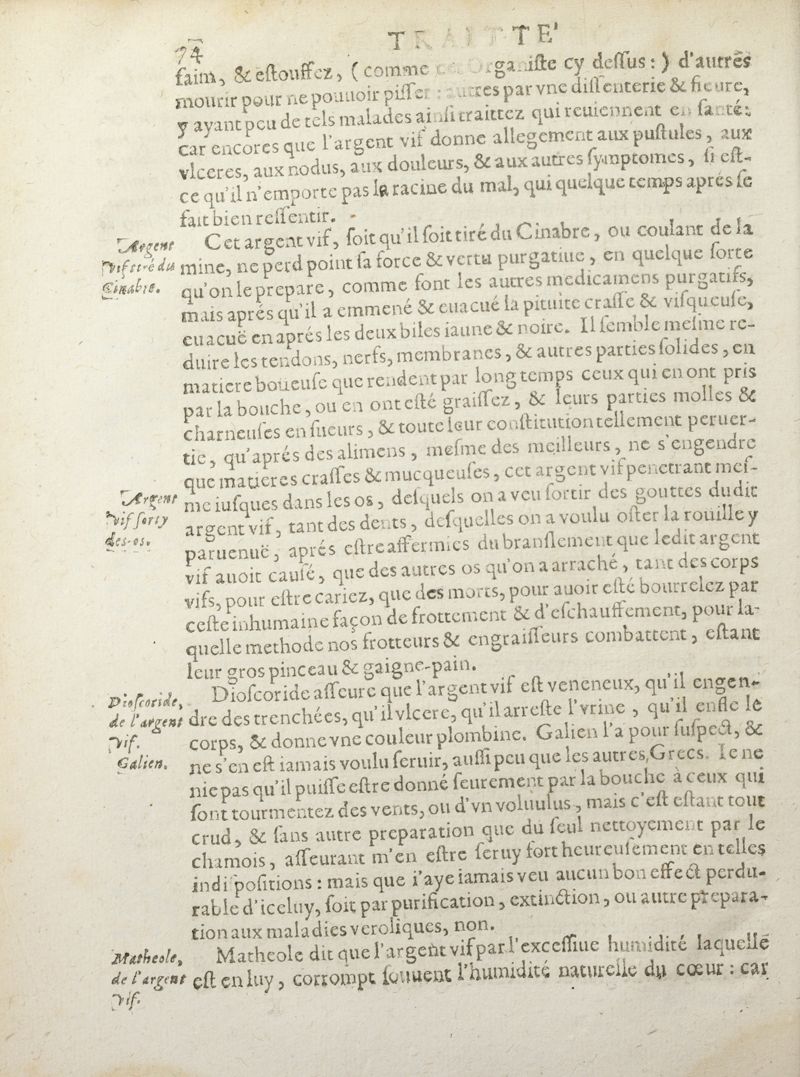 74
TRAITTÉ
faim, & eſtouffez, (comme Organiſte cy deſſus:) d'autres
mourir pour ne pouuoir piſſer: autres par vne diſſenterie & fieure,
y ayant peu de tels malades ainſi traittez qui reuiennent en ſanté:
car encores que l'argent vif donne allegement aux puſtules, aux
vlceres, aux nodus, aux douleurs, & aux autres ſymptomes, ſi eſt-
ce qu'il n'emporte pas la racine du mal, qui quelque temps aprés ſe
fait bien reſſentir.
Argent
vif tiré du
Cinabre.
Cet argent vif, ſoit qu'il ſoit tiré du Cinabre, ou coulant de ſa
mine, ne perd point ſa force & vertu purgatiue, en quelque ſorte
qu'on le prepare, comme font les autres medicamens purgatifs,
mais aprés qu'il a emmené & euacué la pituite craſſe & viſqueuſe,
euacuë en aprés les deux biles iaune & noire. Il ſemble meſme re-
duire les tendons, nerfs, membranes, & autres parties ſolides, en
matiere boueuſe que rendent par long temps ceux qui en ont pris
par la bouche, ou en ont eſté graiſſez, & leurs parties molles &
charneuſes en ſueurs, & toute leur conſtitution tellement peruer-
tie, qu'aprés des alimens, meſme des meilleurs, ne s'engendre
que matieres craſſes & mucqueuſes, cet argent vif penetrant meſ-
Argent
vif ſorty
des os.
me iuſques dans les os, deſquels on a veu ſortir des gouttes dudit
argent vif, tant des dents, deſquelles on a voulu oſter la rouille y
paruenuë, aprés eſtre affermies du branſlement que ledit argent
vif auoit cauſé, que des autres os qu'on a arraché, tant des corps
vifs, pour eſtre cariez, que des morts, pour auoir eſté bourrelez par
ceſte inhumaine façon de frottement & d'eſchauffement, pour la-
quelle methode nos frotteurs & engraiſſeurs combattent, eſtant
leur gros pinceau & gaigne-pain.
Dioſcoride,
de l'argent
vif.
Galien.
Dioſcoride aſſeure que l'argent vif eſt veneneux, qu'il engen-
dre des trenchées, qu'il vlcere, qu'il arreſte l'vrine, qu'il enfle le
corps, & donne vne couleur plombine. Galien l'a pour ſuſpect, &
ne s'en eſt iamais voulu ſeruir, auſſi peu que les autres Grecs. Ie ne
nie pas qu'il puiſſe eſtre donné ſeurement par la bouche à ceux qui
ſont tourmentez des vents, ou d'vn voluulus, mais c'eſt eſtant tout
crud, & ſans autre preparation que du ſeul nettoyement par le
chamois, aſſeurant m'en eſtre ſeruy fort heureuſement en telles
indiſpoſitions: mais que i'aye iamais veu aucun bon effect perdu-
rable d'iceluy, ſoit par purification, extinction, ou autre prepara-
tion aux maladies veroliques, non.
Matheole,
de l'argent
vif.
Matheole dit que l'argent vif par l'exceſſiue humidité laquelle
eſt en luy, corrompt ſouuent l'humidité naturelle du cœur: car